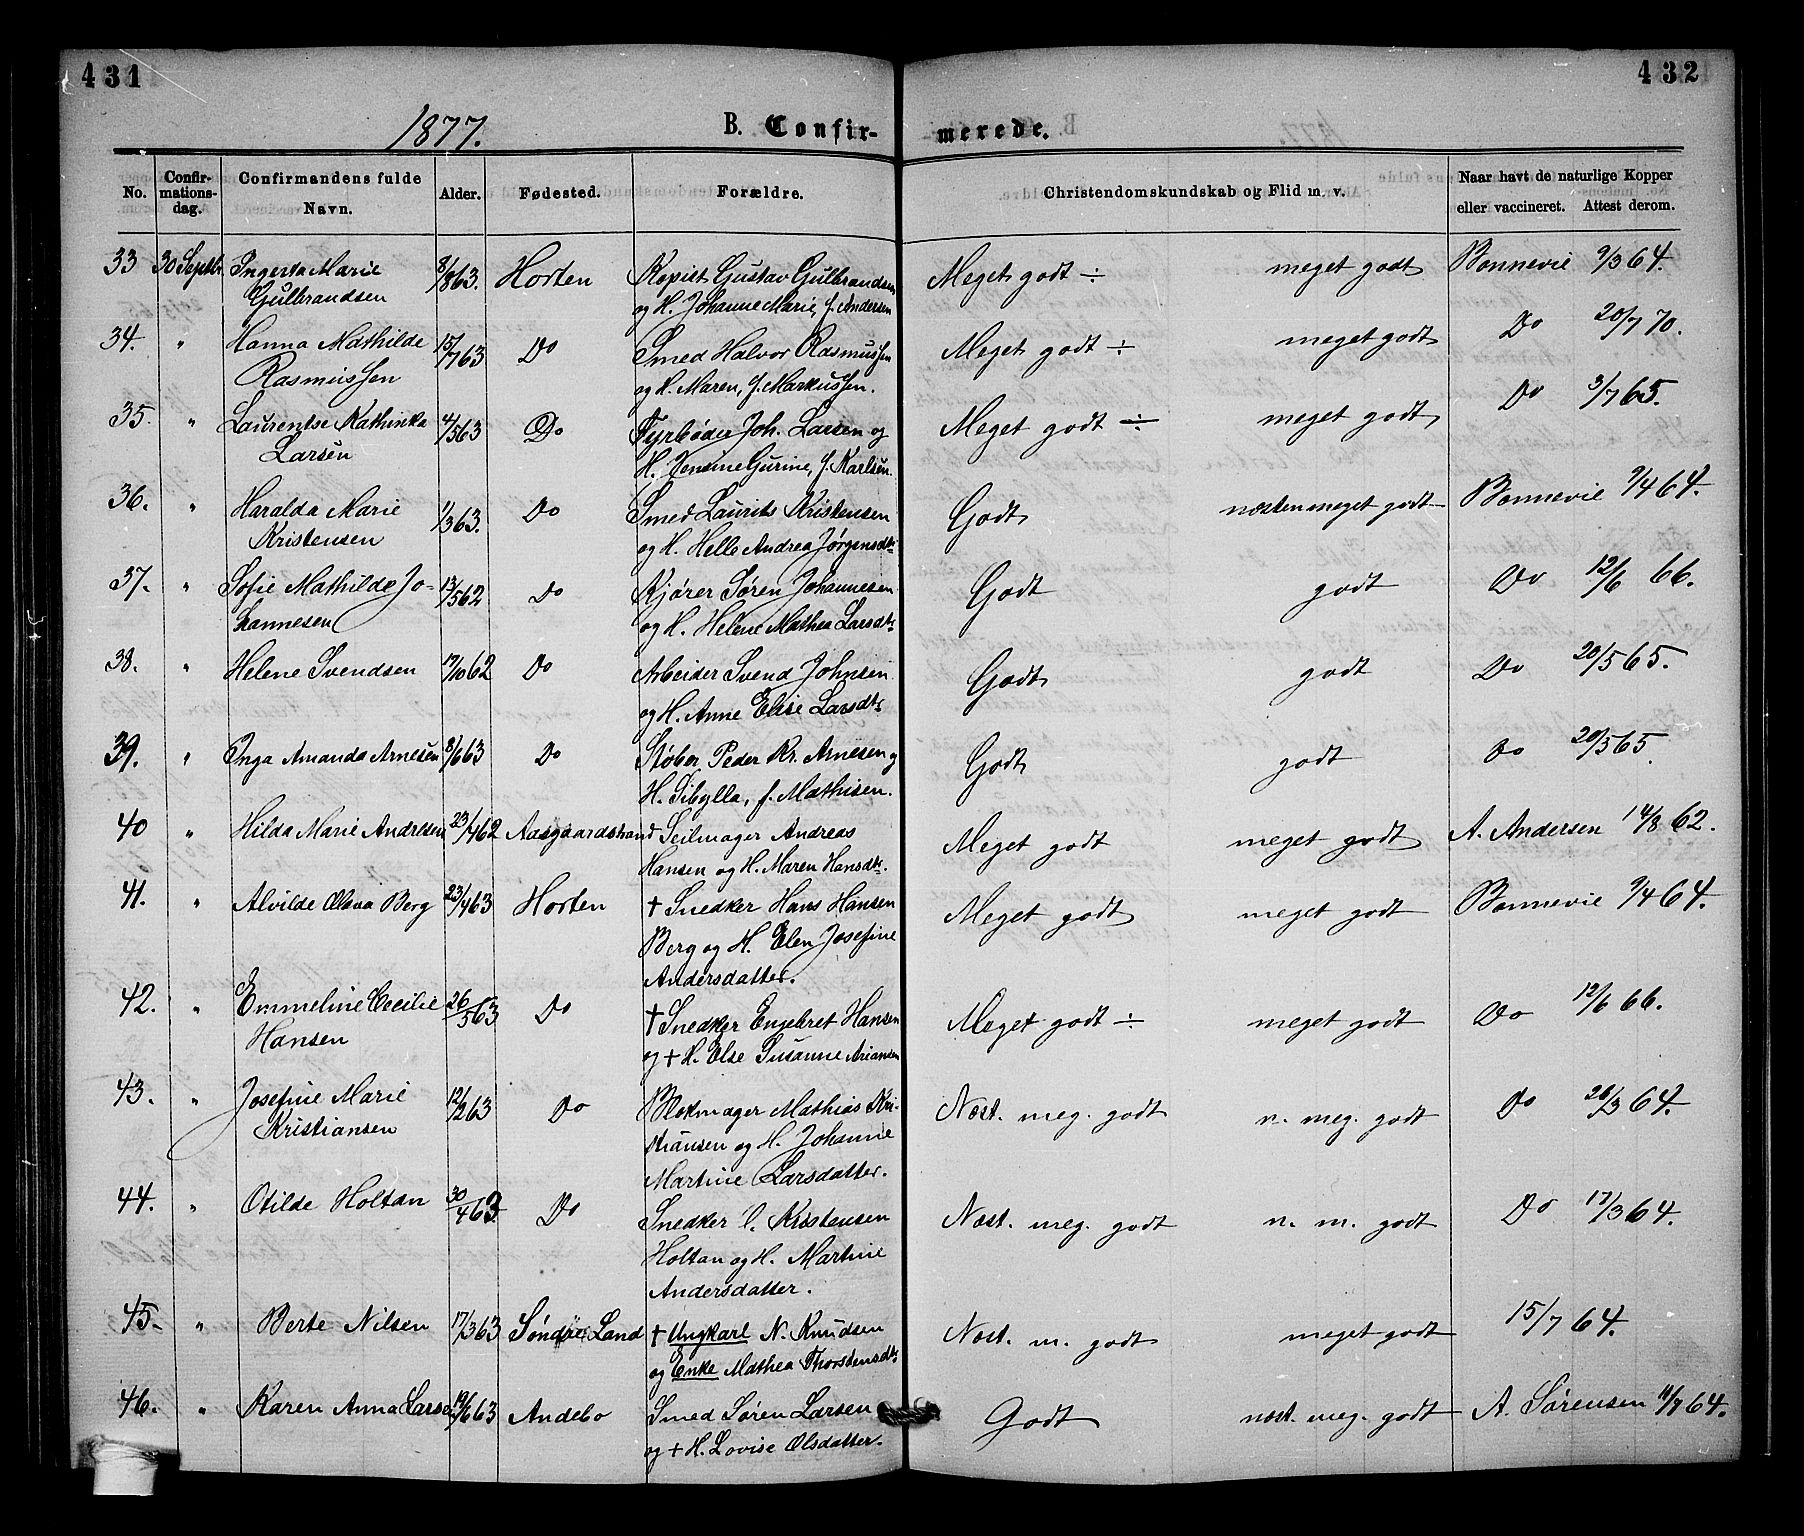 431
432
1877.
B. Confir-
merede.
No.
Confir-
mations-
dag.
Confirmandens fulde
Navn.
Alder.
Fødested.
Forældre.
Christendomskundskab og Flid m. v.
Naar havt de naturlige Kopper
eller vaccineret. Attest derom.
33 30 Septbr Ingerta Marie 8/863. Horten Kopist Gustav Gulbrandsen Meget godt ÷ meget godt Bonnevie 9/3 64.
Gulbrandsen og H. Johanne Marie, f. Andersen
34. " Hanna Mathilde 15/763 Do Smed Halvor Rasmussen Meget godt ÷ meget godt Do 20/7 70.
Rasmussen og H. Maren, f. Markussen.
35. " Laurentse Kathinka 4/563 Do Fyrbøder Joh. Larsen og Meget godt ÷ meget godt Do 3/7 65.
Larsen H. Jensine Gurine, f. Karlsen.
36. " Haralda Marie 1/363. Do Smed Laurits Kristensen Godt næsten meget godt Bonnevie 9/4 64.
Kristensen og H. Helle Andrea Jørgensdtr
37. " Sofie Mathilde Jo- 13/562 Do Kjører Søren Johannesen Godt godt Do 12/6 66.
hannesen og H. Helene Mathea Larsdtr
38. " Helene Svendsen 17/1062 Do Arbeider Svend Johnsen Godt godt Do 20/5 65.
og H. Anne Elise Larsdtr
39. " Inga Amanda Arnesen 8/663 Do Støber Peder Kr. Arnesen og Godt godt Do 20/5 65.
H. Sibylla, f. Mathisen.
40 " Hilda Marie Andresen 23/462 Aasgaardstrand Seilmager Andreas Meget godt meget godt A. Andersen 14/8 62.
Hansen og H. Maren Hansdtr.
41. " Alvilde Olava Berg 23/463 Horten † Snedker Hans Hansen Meget godt meget godt Bonnevie 9/4 64.
Berg og H. Elen Josefine
Andersdatter.
42. " Emmeline Cecilie 26/563 Do † Snedker Engebret Hansen Meget godt ÷ meget godt Do 12/6 66.
Hansen og † H. Else Susanne Ariansen
43. " Josefine Marie 12/263 Do Blokmager Mathias Kri- Næst. meg. godt n. meg. godt Do 20/3 64.
Kristiansen stiansen og H. Johanne
Martine Larsdatter.
44. " Otilde Holtan 30/463 Do Snedker Kristensen Næst. meg. godt n. m. godt Do 17/3 64.
Holtan og H. Martine
Andersdatter.
45. " Berte Nilsen 17/363 Søndre Land † Ungkarl N. Knudsen Næst. m. godt meget godt 15/7 64.
og Enke Mathea Thorstensdtr
46. " Karen Anna Larsen 19/663 Andebo Smed Søren Larsen Godt næst. meg. godt A. Sørensen 11/7 64.
og † H. Lovise Olsdatter.